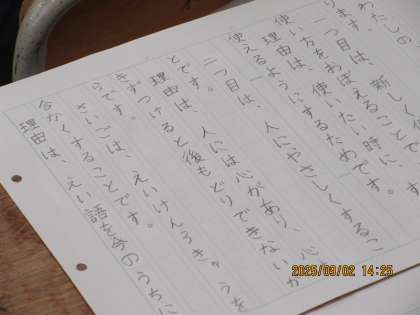 わたしの
ります。
一つ目は、新し
使い方をおぼえることです。
理由は、使いたい時に、
使えるようにするためです。
二つ目は、人にやさしくするこ
とです。
理由は、人には心があり、心
きずつけると後もどりできないか
らです。
さいごは、えいけんろきゅうを
ることです。
理由は、えい語を今のうちに
2025/09/02 14:25